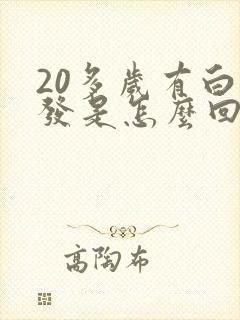 20多歲有白
發是怎麼回
高陶布